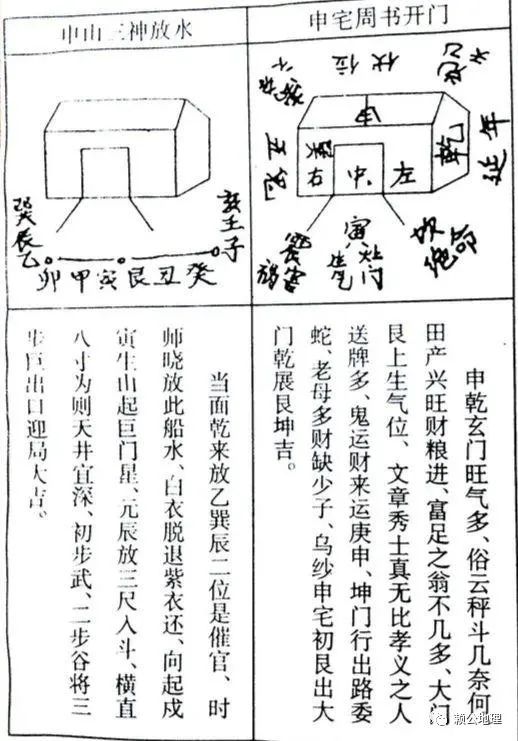 申宅周书开门
伏位
申
乾
延年
右
中
左
寅
灶门
生气
绝命
申乾玄门旺气多、俗云秤斗几奈何
田产兴旺财粮进、富足之翁不几多、大门
艮上生气位、文章秀士真无比孝义之人
送牌多、鬼运财来运庚申、坤门行出路委
蛇、老母多财缺少子、乌纱申宅初艮出大
门乾展艮坤吉。
申山三神放水
巽辰乙
卯甲寅艮丑癸
亥壬子
当面乾来放乙巽辰二位是催官、时
师晓放此船水、白衣脱退紫衣还、向起戍
寅生山起巨门星、元辰放三尺入斗、横直
八寸为则天井宜深、初步武、二步谷将三
步巨出口迎局大吉。
赖公地理